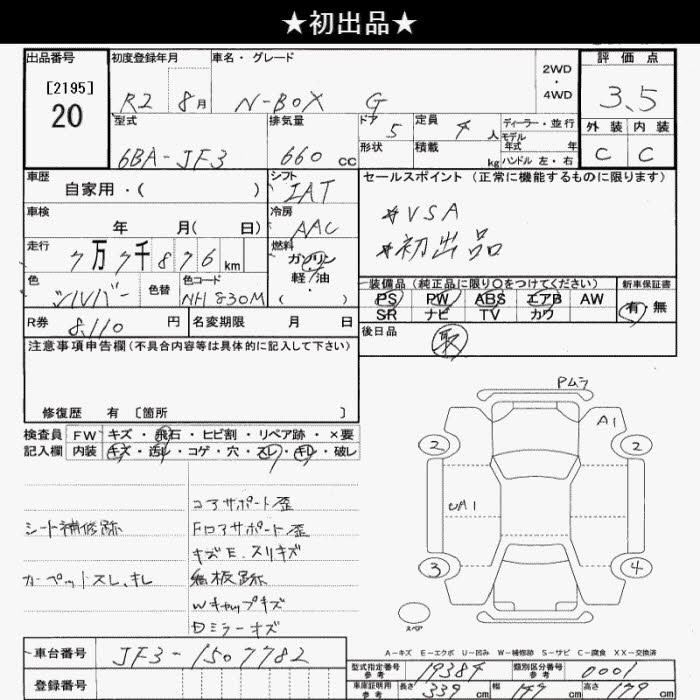 ★初出品★
出品番号
[2195]
20
初度登録年月
R2 8月
車名・グレード
N-BOX G
2WD
・
4WD
評価点
3.5
外装 内装
C C
型式
6BA-JF3
排気量
660 cc
ドア
5
定員
4人
ディーラー・並行
モデル
年式 年
形状
積載
kg
ハンドル 左・右
車歴
自家用・( )
シフト
IAT
セールスポイント(正常に機能するものに限ります)
*VSA
*初出品
車検
年 月( 日)
冷房
AAC
走行
7万7千876km
燃料
ガソリン
軽油
・
( )
色
シルバー
色替
色コード
NH830M
装備品(純正品に限り○をつけてください)
PS PW ABS エアB AW
SR ナビ TV カワ
新車保証書
有・無
R券
8,110円
名変期限 月 日
後日品
取
注意事項申告欄(不具合内容等は具体的に記入して下さい)
修復歴 有 〔箇所 〕
検査員
記入欄
FW キズ・飛石・ヒビ割・リペア跡・×要
内装 キズ・汚レ・コゲ・穴・スレ・キレ・破レ
シート補修跡
カーペットスレ、キレ
コアサポート歪
Fロアサポート歪
キズE、スリキズ
Wキャップキズ
Pムラ
A1
2
2
UA1
3
4
スペア
A-キズ E-エクボ U-凹み W-補修跡 S-サビ C-腐食 XX-交換済
車台番号
JF3-1507782
登録番号
型式指定番号
参考
19384
類別区分番号
参考
0001
車庫証明用
参考
長さ 339cm
幅 147cm
高さ 179cm